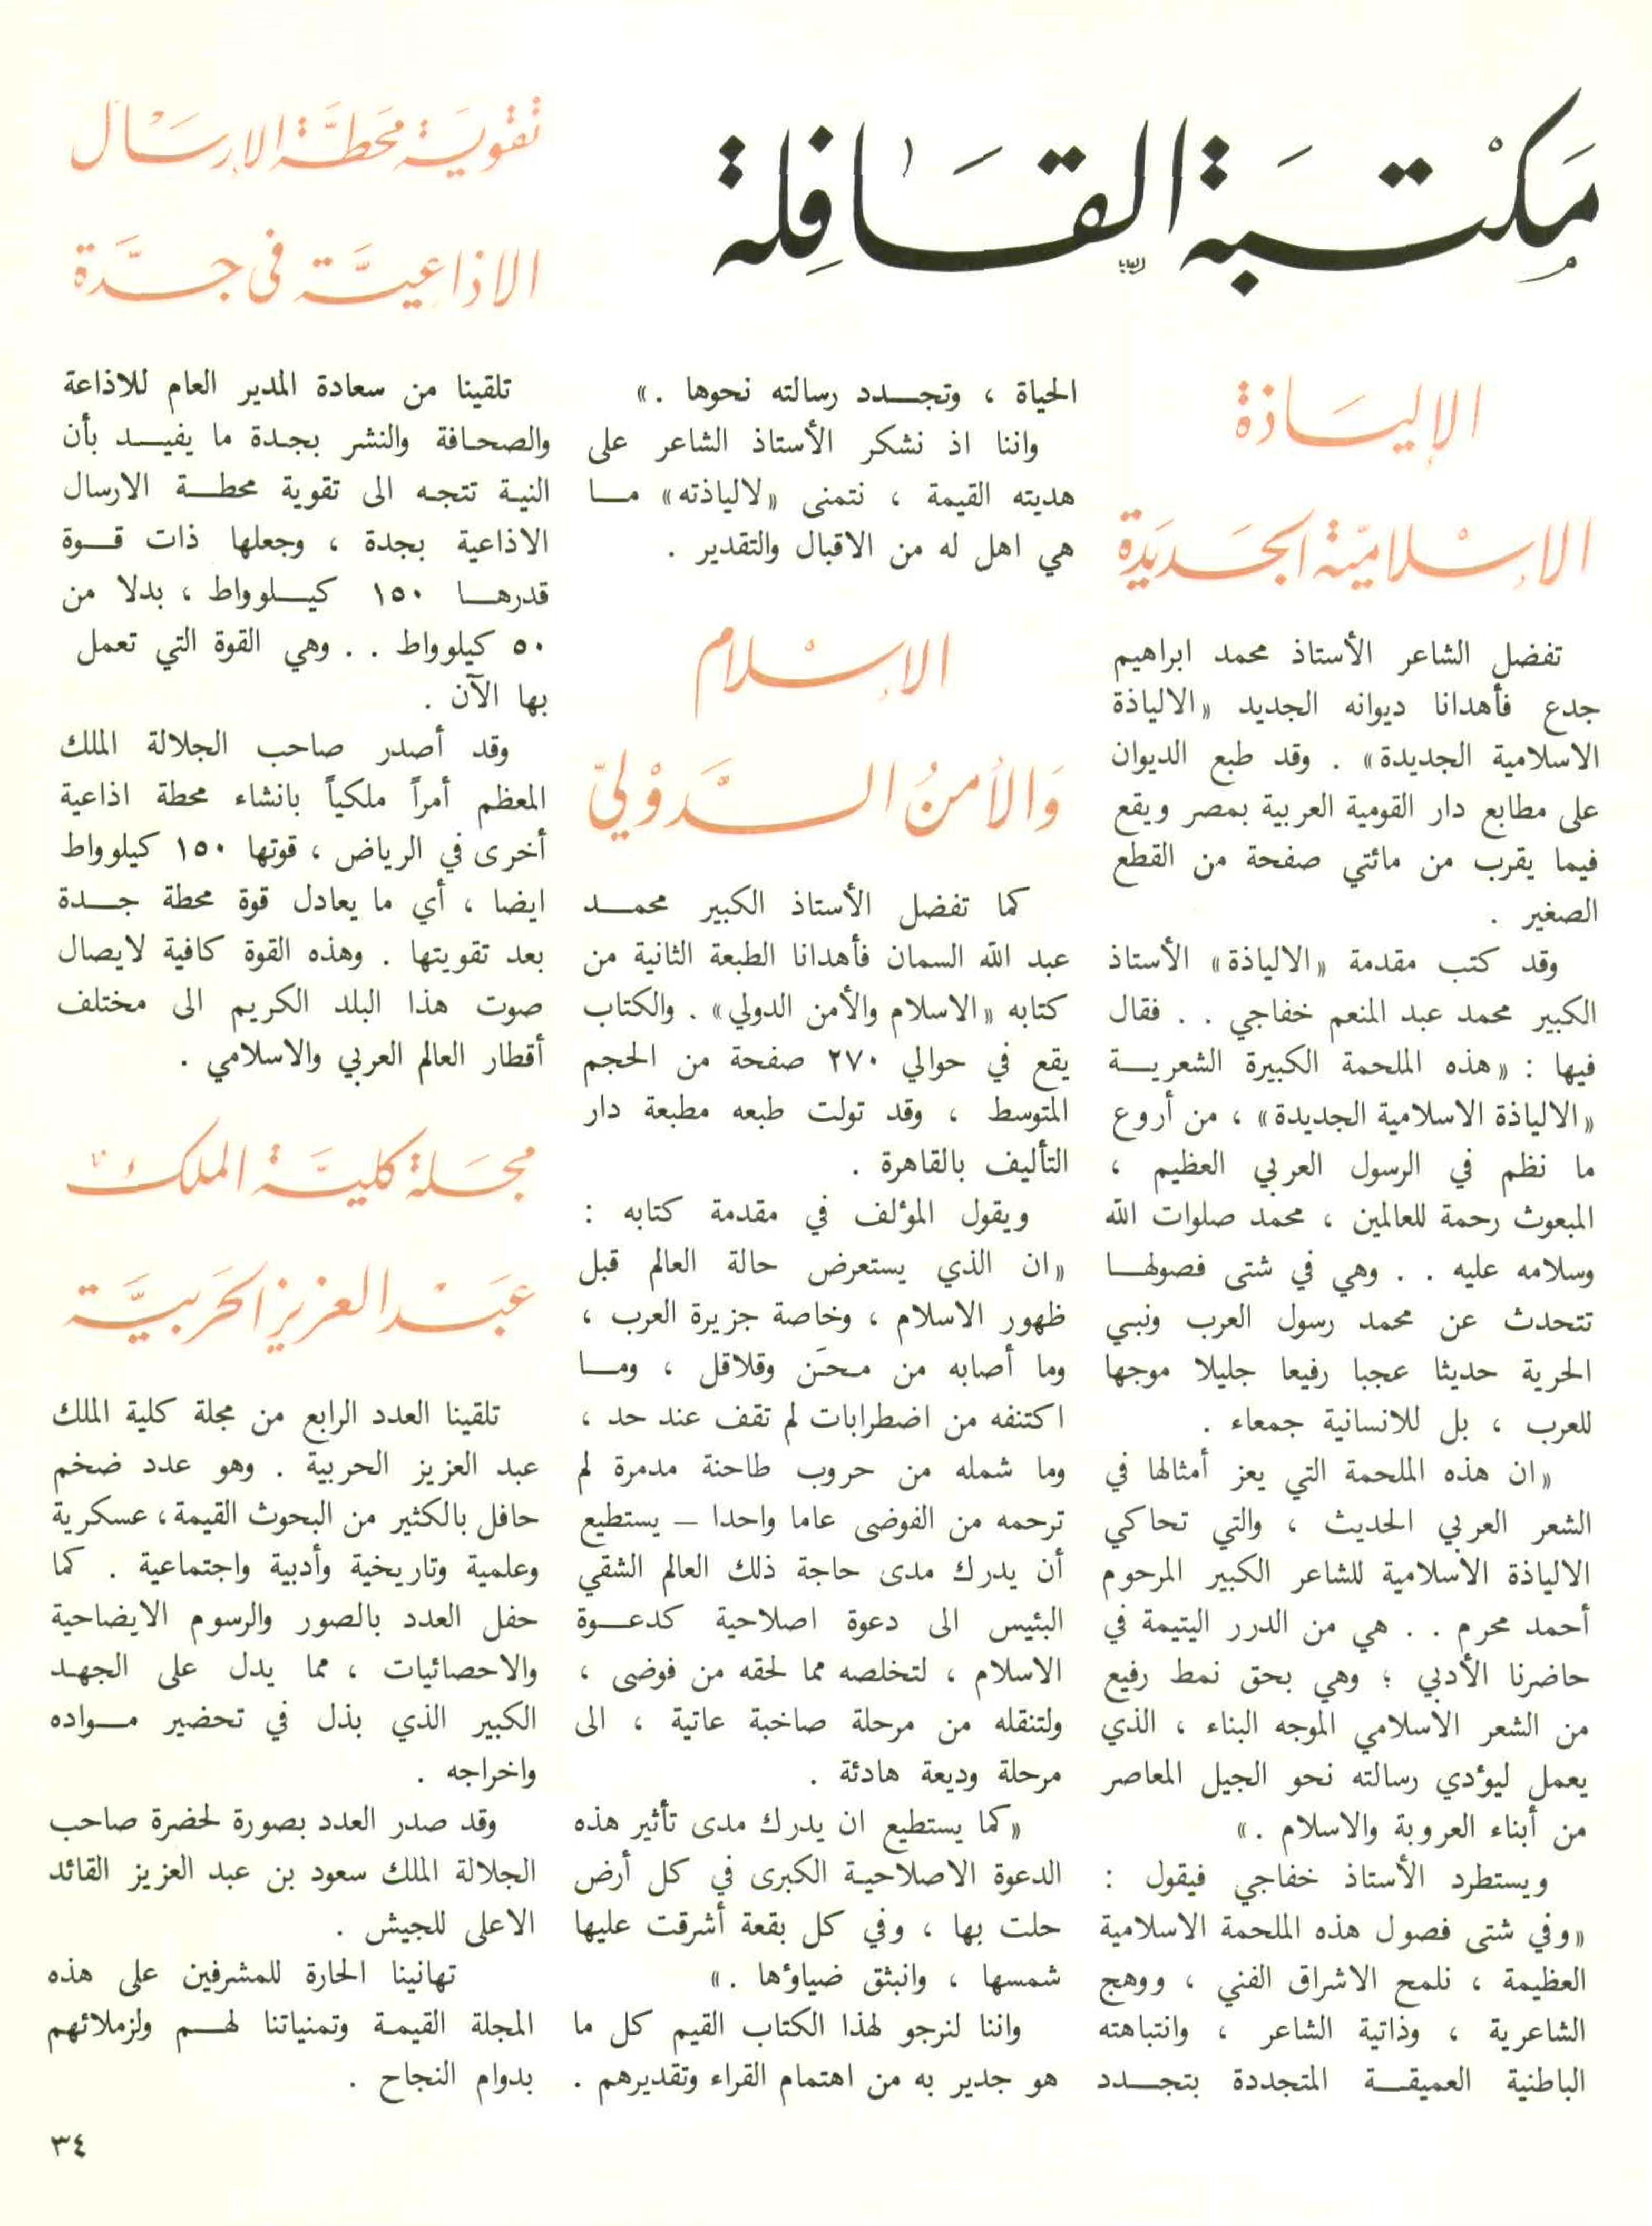 مَكْتَبَة القَافِلة
الإليَاذة
الإسْلاميّة الجَديَدة
تفضل الشاعر الأستاذ محمد ابراهيم
جدع فأهدانا ديوانه الجديد «الالياذة
الاسلامية الجديدة» . وقد طبع الديوان
على مطابع دار القومية العربية بمصر ويقع
فيما يقرب من مائتي صفحة من القطع
الصغير .
وقد كتب مقدمة «الالياذة» الأستاذ
الكبير محمد عبد المنعم خفاجي . . فقال
فيها : «هذه الملحمة الكبيرة الشعريـــة
«الالياذة الاسلامية الجديدة» ، من أروع
ما نظم في الرسول العربي العظيم ،
المبعوث رحمة للعالمين ، محمد صلوات الله
وسلامه عليه . . وهي في شتى فصولهـــا
تتحدث عن محمد رسول العرب ونبي
الحرية حديثا عجبا رفيعا جليلا موجها
للعرب ، بل للانسانية جمعاء .
«ان هذه الملحمة التي يعز أمثالها في
الشعر العربي الحديث ، والتي تحاكي
الالياذة الاسلامية للشاعر الكبير المرحوم
أحمد محرم . . هي من الدرر اليتيمة في
حاضرنا الأدبي ؛ وهي بحق نمط رفيع
من الشعر الاسلامي الموجه البناء ، الذي
يعمل ليؤدي رسالته نحو الجيل المعاصر
من أبناء العروبة والاسلام .»
ويستطرد الأستاذ خفاجي فيقول :
«وفي شتى فصول هذه الملحمة الاسلامية
العظيمة ، نلمح الاشراق الفني ، ووهج
الشاعرية ، وذاتية الشاعر ، وانتباهته
الباطنية العميقـــة المتجددة بتجـــدد
الحياة ، وتجـــدد رسالته نحوها .»
واننا اذ نشكر الأستاذ الشاعر على
هديته القيمة ، نتمنى «لالياذته» مـــا
هي اهل له من الاقبال والتقدير .
الإسْلام
وَالأمنُ الـــدَّوْليّ
كما تفضل الأستاذ الكبير محمـــد
عبد الله السمان فأهدانا الطبعة الثانية من
كتابه «الاسلام والأمن الدولي» . والكتاب
يقع في حوالي ٢٧٠ صفحة من الحجم
المتوسط ، وقد تولت طبعه مطبعة دار
التأليف بالقاهرة .
ويقول المؤلف في مقدمة كتابه :
«ان الذي يستعرض حالة العالم قبل
ظهور الاسلام ، وخاصة جزيرة العرب ،
وما أصابه من محَن وقلاقل ، ومـــا
اكتنفه من اضطرابات لم تقف عند حد ،
وما شمله من حروب طاحنة مدمرة لم
ترحمه من الفوضى عاما واحدا – يستطيع
أن يدرك مدى حاجة ذلك العالم الشقي
البئيس الى دعوة اصلاحية كدعـــوة
الاسلام ، لتخلصه مما لحقه من فوضى ،
ولتنقله من مرحلة صاخبة عاتية ، الى
مرحلة وديعة هادئة .
«كما يستطيع ان يدرك مدى تأثير هذه
الدعوة الاصلاحيـة الكبرى في كل أرض
حلت بها ، وفي كل بقعة أشرقت عليها
شمسها ، وانبثق ضياؤها .»
واننا لنرجو لهذا الكتاب القيم كل ما
هو جدير به من اهتمام القراء وتقديرهم .
تقويَة محَطَّة الإرسَال
الاذاعيَّة في جـــدَّة
تلقينا من سعادة المدير العام للاذاعة
والصحـافة والنشر بجـدة ما يفيـــد بأن
النيـة تتجـه الى تقوية محطـــة الارسال
الاذاعية بجدة ، وجعلها ذات قـــوة
قدرهـــا ١٥٠ كيـــلوواط ، بدلا من
٥٠ كيلوواط . . وهي القوة التي تعمل
بها الآن .
وقد أصدر صاحب الجلالة الملك
المعظم أمراً ملكياً بانشاء محطة اذاعية
أخرى في الرياض ، قوتها ١٥٠ كيلوواط
ايضا ، أي ما يعادل قوة محطة جـــدة
بعد تقويتها . وهذه القوة كافية لايصال
صوت هذا البلد الكريم الى مختلف
أقطار العالم العربي والاسلامي .
مجَـلة كليَّـة الملك
عبْـد العزيز الحَربيَّة
تلقينا العدد الرابع من مجلة كلية الملك
عبد العزيز الحربية . وهو عدد ضخم
حافل بالكثير من البحوث القيمة، عسكرية
وعلمية وتاريخية وأدبية واجتماعية . كما
حفل العدد بالصور والرسوم الايضاحية
والاحصائيات ، مما يدل على الجهـد
الكبير الذي بذل في تحضير مـــواده
واخراجه .
وقد صدر العدد بصورة لحضرة صاحب
الجلالة الملك سعود بن عبد العزيز القائد
الاعلى للجيش .
تهانينا الحارة للمشرفين على هذه
المجلة القيمـة وتمنياتنا لهـــم ولزملائهم
بدوام النجاح .
٣٤